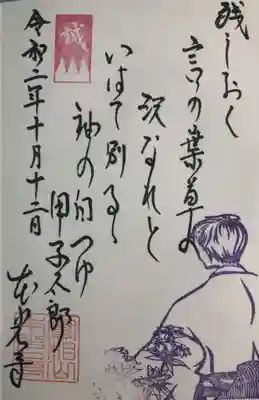 残しおく
言の葉草の
沢なれと
いはて別るゝ
袖の白つゆ
甲子太郎
誠
令和二年十月十二日
本光寺